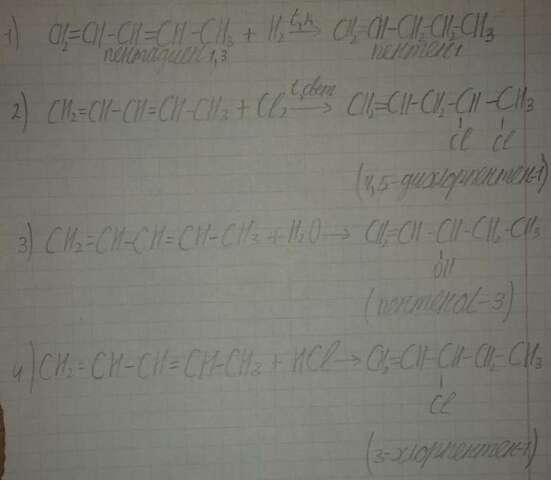 1) CH2=CH-CH=CH-CH3 + H2 t,k→ CH2=CH-CH2-CH2-CH3
пентадиен 1,3 пентен1
2) CH2=CH-CH=CH-CH3 + Cl2 t,свет→ CH2=CH-CH2-CH-CH3
Cl Cl
(4,5-дихлорпентен-1)
3) CH2=CH-CH=CH-CH3 + H2O → CH2=CH-CH-CH2-CH3
OH
(пентенол-3)
4) CH2=CH-CH=CH-CH3 + HCl → CH2=CH-CH-CH2-CH3
Cl
(3-хлорпентен-1)